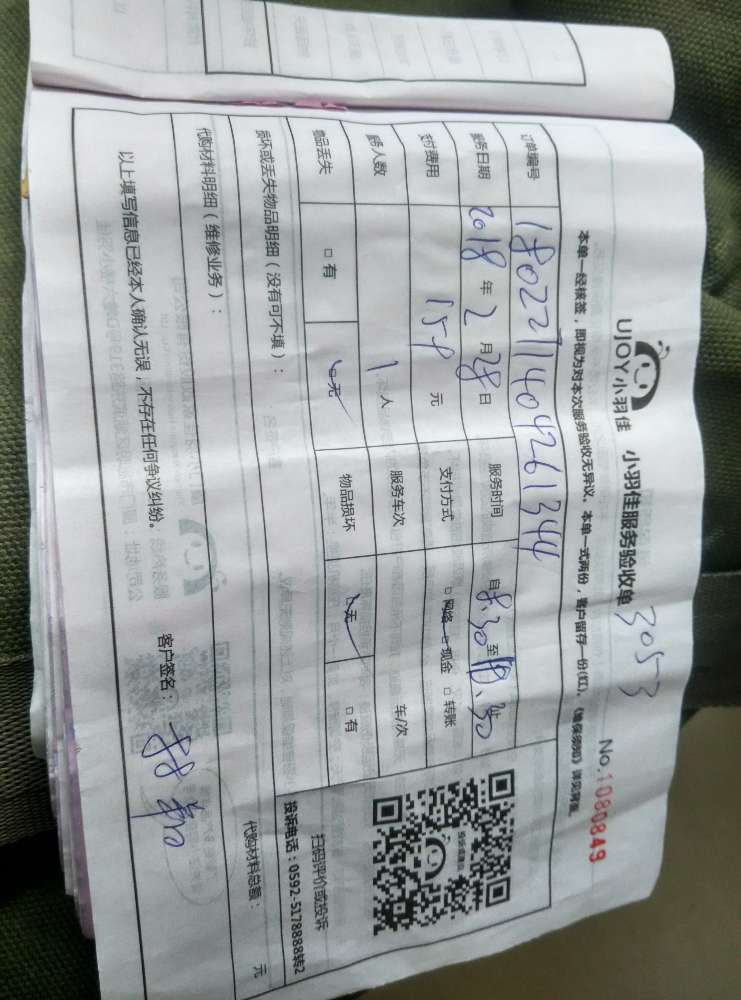 UJOY小羽佳 小羽佳服务验收单 3053
No.1080849
本单一经核签，即视为对本次服务验收无异议。本单一式两份，客户留存一份(红)。《维保须知》详见背面。
订单编号 1802271404261344
服务日期 2018年2月28日 服务时间 自8.30至
支付费用 元 支付方式 □网络 □现金 □转账
服务人数 1人 服务车次 车/次
物品丢失 □有 □无 物品损坏 □无 □有
损坏或丢失物品明细（没有可不填）：
代购材料明细（维修业务）：
代购材料总额： 元
以上填写信息已经本人确认无误，不存在任何争议纠纷。 客户签名：
扫码评价或投诉
投诉电话：0592-5178888转2